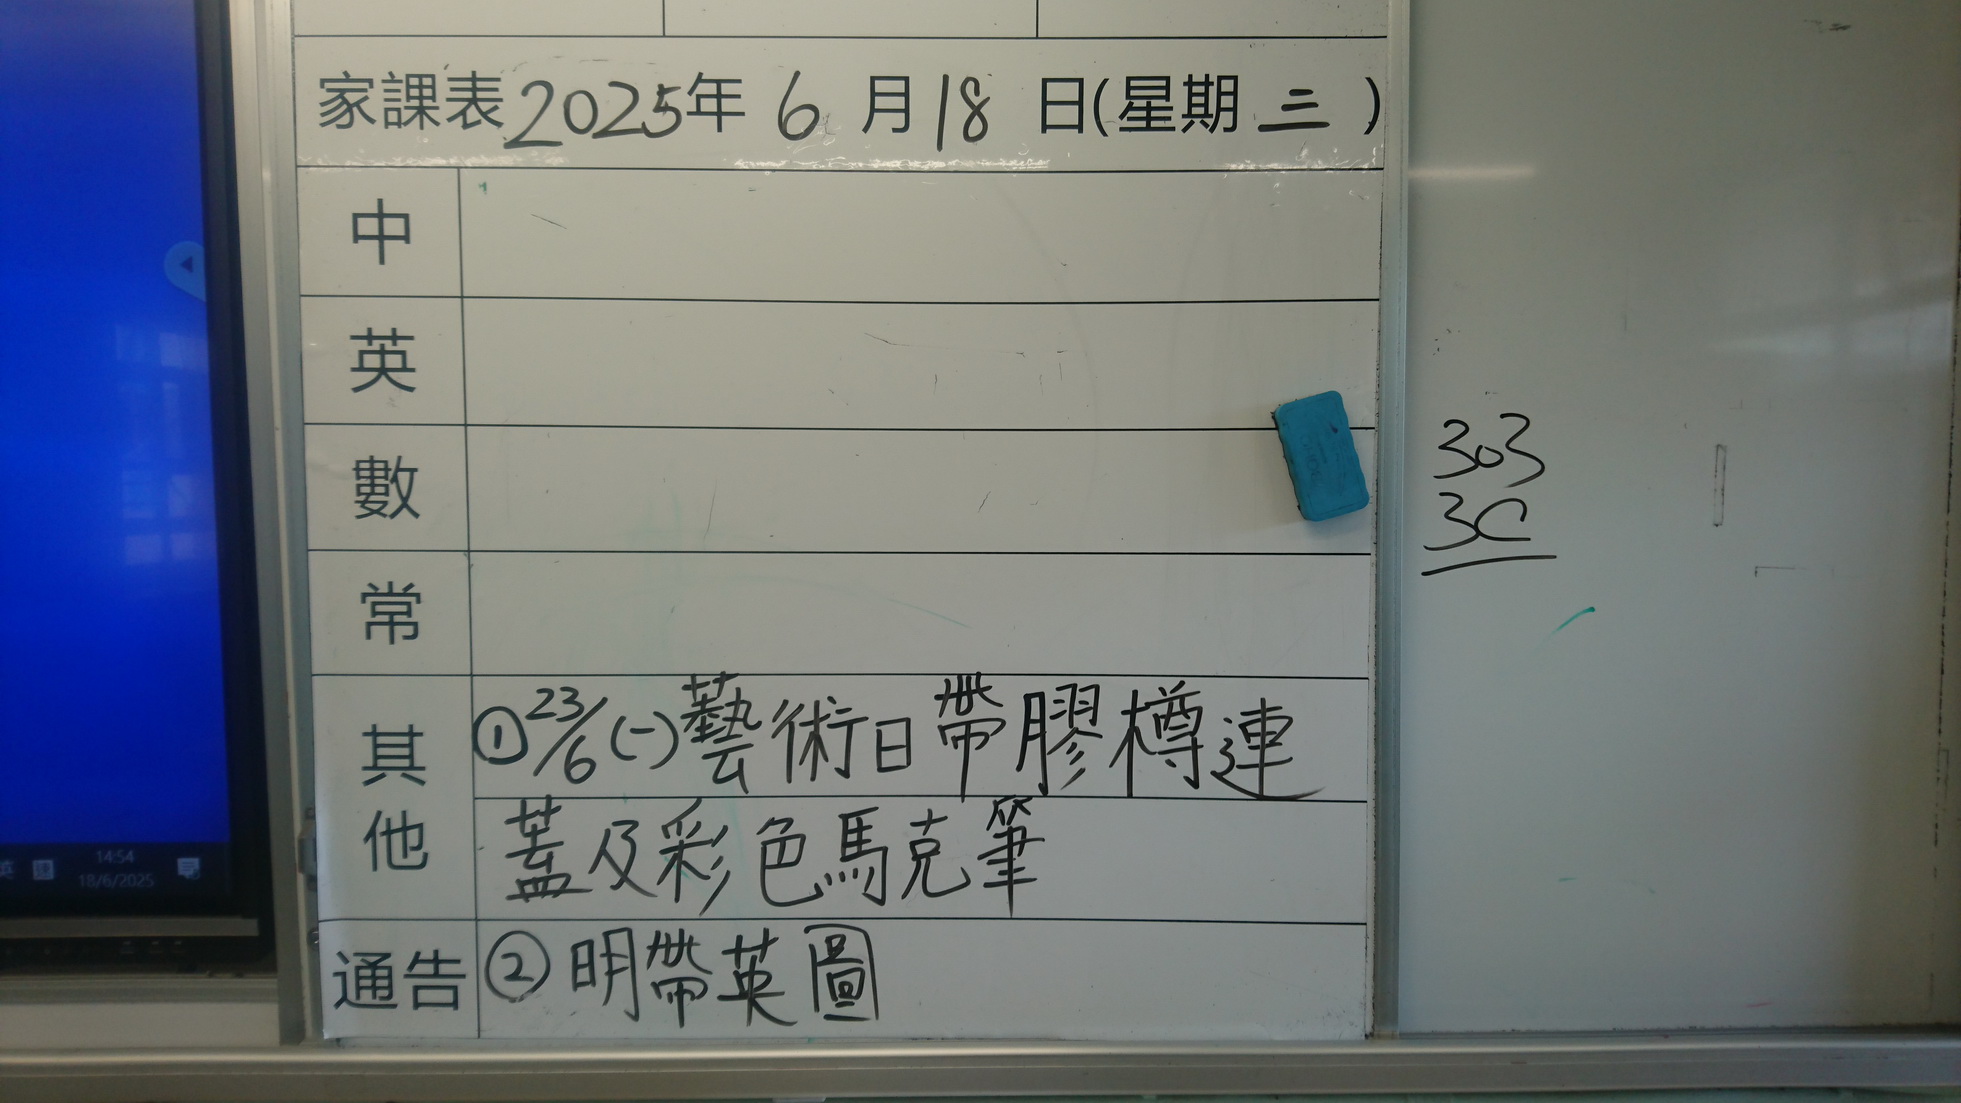 家課表2025年 6 月 18 日(星期 三 )
中
英
數
常
其他
①23/6(一)藝術日帶膠樽連
蓋及彩色馬克筆
通告 ②明帶英圖
303
3C
英
14:54
18/6/2025